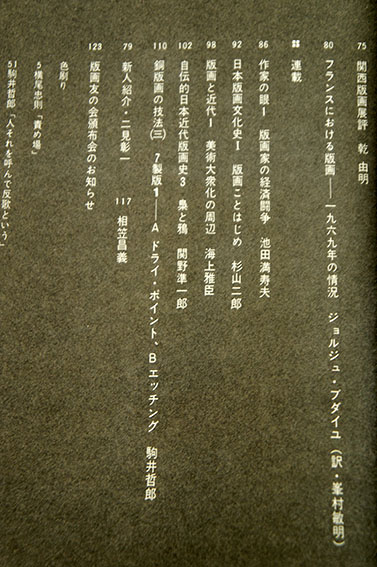 75 関西版画展評 乾 由明
80 フランスにおける版画——一九六九年の情況 ジョルジュ・ブダイユ(訳・峯村敏明)
連載
86 作家の眼Ⅰ 版画家の経済闘争 池田満寿夫
92 日本版画文化史Ⅰ 版画ことはじめ 杉山二郎
98 版画と近代Ⅰ 美術大衆化の周辺 海上雅臣
102 自伝的日本近代版画史3 梟と鴉 関野準一郎
110 銅版画の技法(三) 7製版1——A ドライ・ポイント、B エッチング 駒井哲郎
79 新人紹介・二見彰一 117 相笠昌義
123 版画友の会頒布会のお知らせ
色刷り
5 横尾忠則「責め場」
51 駒井哲郎「人それを呼んで反歌という」